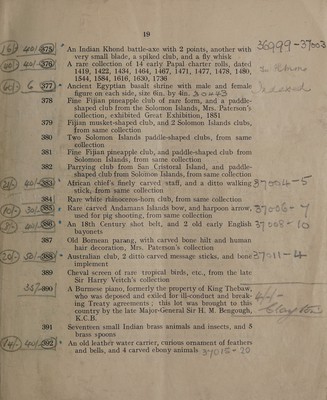 19
16/- 40/- 375 * An Indian Khond battle-axe with 2 points, another with 36999-37003
very small blade, a spiked club, and a fly whisk
40/- 376 * A rare collection of 14 early Papal charter rolls, dated
1419, 1422, 1434, 1464, 1467, 1471, 1477, 1478, 1480,
1544, 1584, 1616, 1630, 1736
6 377 * Ancient Egyptian basalt shrine with male and female
figure on each side, size 6in. by 4in. 30443
378 Fine Fijian pineapple club of rare form, and a paddle-
shaped club from the Solomon Islands, Mrs. Paterson's
collection, exhibited Great Exhibition, 1851
379 Fijian musket-shaped club, and 2 Solomon Islands clubs,
from same collection
380 Two Solomon Islands paddle-shaped clubs, from same
collection
381 Fine Fijian pineapple club, and paddle-shaped club from
Solomon Islands, from same collection
382 Parrying club from San Cristoral Island, and paddle-
shaped club from Solomon Islands, from same collection
383 * African chief's finely carved staff, and a ditto walking 37004-5
stick, from same collection
384 Rare white rhinoceros-horn club, from same collection
30/- 385 * Rare carved Andamans Islands bow, and harpoon arrow, 37006-7
used for pig shooting, from same collection
40/- 386 * An 18th Century shot belt, and 2 old early English 37008-10
bayonets
387 Old Bornean parang, with carved bone hilt and human
hair decoration, Mrs. Paterson's collection
388 * Australian club, 2 ditto carved message sticks, and bone 37011-4
implement
389 Cheval screen of rare tropical birds, etc., from the late
Sir Harry Veitch's collection
390 A Burmese piano, formerly the property of King Thebaw,
who was deposed and exiled for ill-conduct and break-
ing Treaty agreements; this lot was brought to this
country by the late Major-General Sir H. M. Bengough,
K.C.B.
Clayton
391 Seventeen small Indian brass animals and insects, and 8
brass spoons
14/- 40/- 392 * An old leather water carrier, curious ornament of feathers
and bells, and 4 carved ebony animals 37015-20